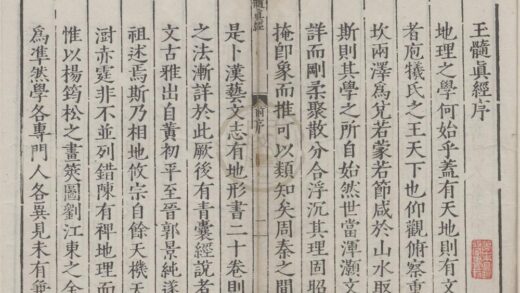 玉髓眞經序
地理之學何始乎蓋有天地則有文
者庖犧氏之王天下也仰觀俯察重
坎兩澤爲兌若蒙若節咸於山水取
斯則其學之所自始然世當渾灝文
詳而剛柔聚散分合浮沉其理固昭
掩卽象而推可以類知矣周秦之間
髓眞經
前序
一
是卜漢藝文志有地形書二十卷則
之法漸詳於此厥後有青囊經說者
文古雅出自黃初平至晉郭景純遂
祖述焉斯乃相地攸宗自餘天機天
厨赤霆非不並列錯陳有裨地理而
惟以楊筠松之畫筴圖劉江東之全
爲準然學各專門人各異見未有兼